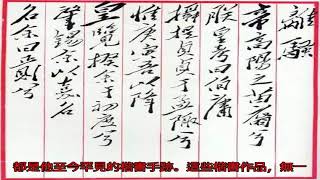 離騷
帝高陽之苗裔兮
朕皇考曰伯庸
攝提貞于孟陬兮
惟庚寅吾以降
皇覽揆余于初度兮
肇錫余以嘉名
名余曰正則兮
都是他至今罕見的楷書手跡。這些楷書作品，無一